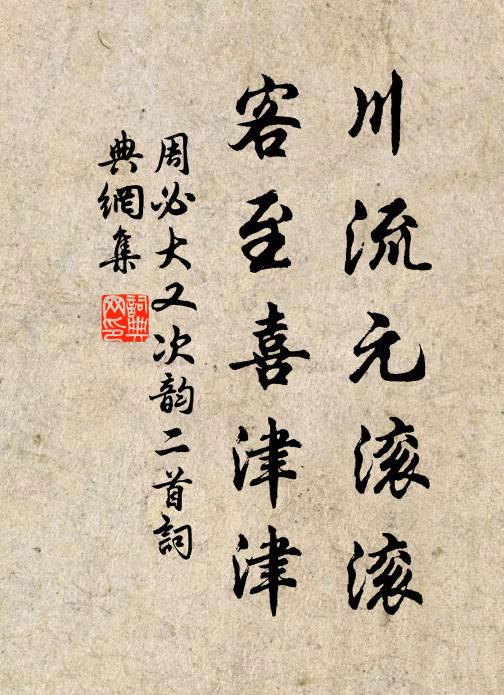 川流元滚滚
客至喜津津
周必大又次韵二首詞
典網集
詞典網印